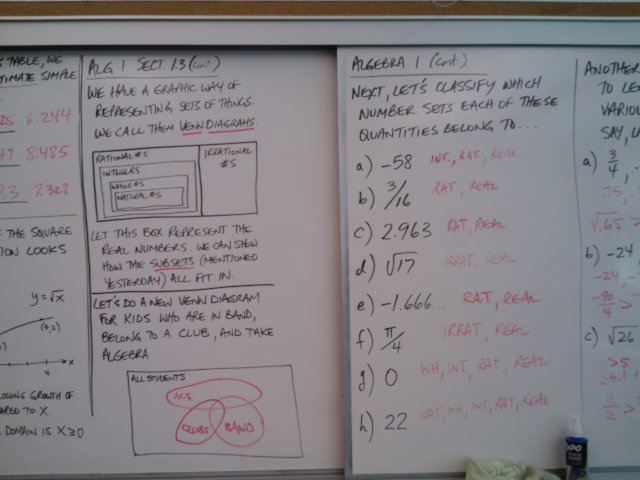 TABLE, WE
TIMATE SIMPLE
25 6.244
47 8.485
7.3 7.328
F THE SQUARE
ION LOOKS
y=√x
(4,2)
x
4
LOWING GROWTH OF
ARED TO X.
DOMAIN IS X≥0.
ALG 1 SECT. 1.3 (cont.)
WE HAVE A GRAPHIC WAY OF
REPRESENTING SETS OF THINGS.
WE CALL THEM VENN DIAGRAMS.
RATIONAL #S
INTEGERS
WHOLE #S
NATURAL #S
IRRATIONAL
#S
LET THIS BOX REPRESENT THE
REAL NUMBERS. WE CAN SHOW
HOW THE SUBSETS (MENTIONED
YESTERDAY) ALL FIT IN.
LET'S DO A NEW VENN DIAGRAM
FOR KIDS WHO ARE IN BAND,
BELONG TO A CLUB, AND TAKE
ALGEBRA
ALL STUDENTS
ALG
CLUBS
BAND
ALGEBRA 1 (cont.)
NEXT, LET'S CLASSIFY WHICH
NUMBER SETS EACH OF THESE
QUANTITIES BELONG TO...
a) -58 INT, RAT, REAL
b) 3/16 RAT, REAL
c) 2.963 RAT, REAL
d) √17 IRRAT, REAL
e) -1.666... RAT, REAL
f) π/4 IRRAT, REAL
g) 0 WH, INT, RAT, REAL
h) 22 NAT, WH, INT, RAT, REAL
ANOTHER
TO LE
VARIOU
SAY, LA
a) 3/4,
.75,
√.65 >
b) -24,
-24,
-90/4 >
c) √26
>5
11/2 >
EXPO